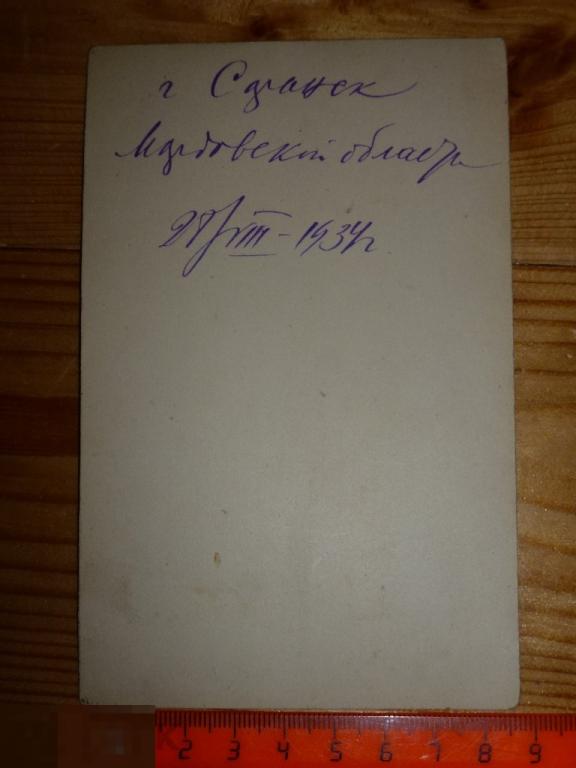 г Саранск
Мордовской области
VIII - 1934 г
2 3 4 5 6 7 8 9